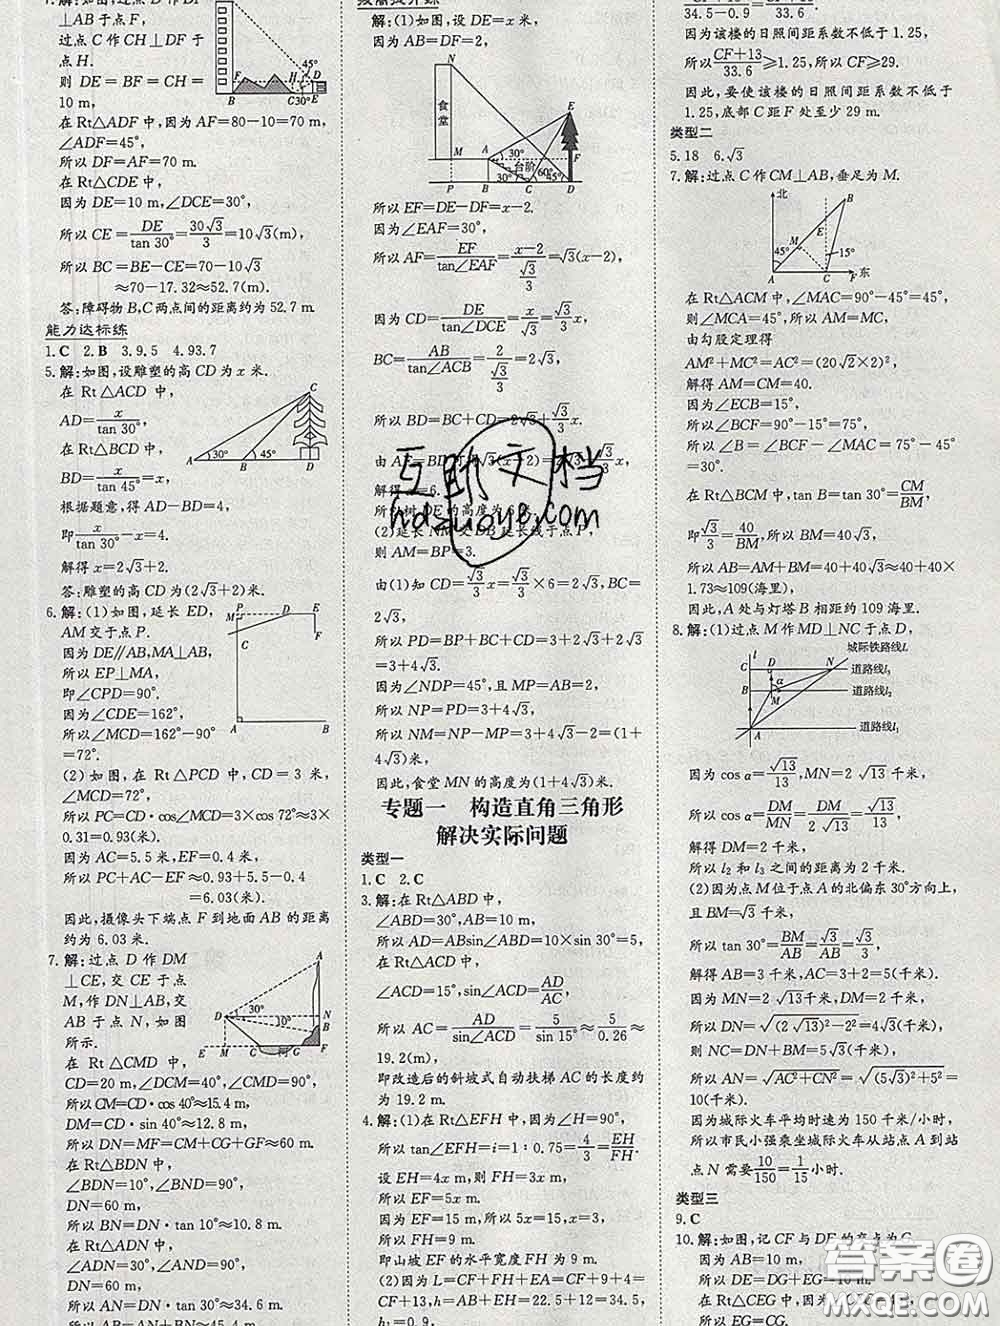 AB于点F,
过点C作CH⊥DF于
点H.
则 DE=BF=CH=
10 m,
在Rt△ADF中,因为AF=80-10=70 m,
∠ADF=45°,
所以DF=AF=70 m.
在Rt△CDE中,
因为DE=10 m,∠DCE=30°,
所以CE=DE/tan 30°=30√3/3=10√3(m),
所以BC=BE-CE=70-10√3
≈70-17.32≈52.7(m).
答:障碍物B,C两点间的距离约为52.7 m.
能力达标练
1.C 2.B 3.9.5 4.93.7
5.解:如图,设雕塑的高CD为x米.
在Rt△ACD中,
AD=x/tan 30°,
在Rt△BCD中,
BD=x/tan 45°=x,
根据题意,得AD-BD=4,
即x/tan 30°-x=4.
解得x=2√3+2.
答:雕塑的高CD为(2√3+2)米.
6.解:(1)如图,延长ED,
AM交于点P.
因为DE∥AB,MA⊥AB,
所以EP⊥MA,
即∠CPD=90°,
因为∠CDE=162°,
所以∠MCD=162°-90°
=72°.
(2)如图,在Rt△PCD中,CD=3米,
∠MCD=72°,
所以PC=CD·cos∠MCD=3×cos 72°≈3×
0.31=0.93(米).
因为AC=5.5米,EF=0.4米,
所以PC+AC-EF≈0.93+5.5-0.4
=6.03(米).
因此,摄像头下端点F到地面AB的距离
约为6.03米.
7.解:过点D作DM
⊥CE,交CE于点
M,作DN⊥AB,交
AB于点N,如图
所示.
在Rt△CMD中,
CD=20 m,∠DCM=40°,∠CMD=90°,
所以CM=CD·cos 40°≈15.4 m,
DM=CD·sin 40°≈12.8 m,
所以DN=MF=CM+CG+GF=60 m.
在Rt△BDN中,
∠BDN=10°,∠BND=90°,
DN=60 m,
所以BN=DN·tan 10°≈10.8 m.
在Rt△ADN中,
∠ADN=30°,∠AND=90°,
DN=60 m,
所以AN=DN·tan 30°≈34.6 m.
解:(1)如图,设DE=x米,
因为AB=DF=2,
食堂
台阶
所以EF=DE-DF=x-2.
因为∠EAF=30°,
所以AF=EF/tan∠EAF=(x-2)/(√3/3)=√3(x-2),
因为CD=DE/tan∠DCE=x/√3=√3/3x,
BC=AB/tan∠ACB=2/(√3/3)=2√3,
所以BD=BC+CD=2√3+√3/3x.
(2)延长NM交DB延长线于点P,
则AM=BP=3.
由(1)知CD=√3/3x=√3/3×6=2√3,BC=
2√3,
所以PD=BP+BC+CD=3+2√3+2√3
=3+4√3.
因为∠NDP=45°,且MP=AB=2,
所以NP=PD=3+4√3,
所以NM=NP-MP=3+4√3-2=(1+
4√3)米,
因此,食堂MN的高度为(1+4√3)米.
专题一 构造直角三角形
解决实际问题
类型一
1.C 2.C
3.解:在Rt△ABD中,
∠ABD=30°,AB=10 m,
所以AD=ABsin∠ABD=10×sin 30°=5,
在Rt△ACD中,
∠ACD=15°,sin∠ACD=AD/AC,
所以AC=AD/sin∠ACD=5/sin 15°≈5/0.26≈
19.2(m),
即改造后的斜坡式自动扶梯AC的长度约
为19.2 m.
4.解:(1)在Rt△EFH中,因为∠H=90°,
所以tan∠EFH=i=1:0.75=4/3=EH/FH.
设EH=4x m,则FH=3x m,
所以EF=5x m.
因为EF=15 m,所以5x=15,x=3,
所以FH=9 m.
即山坡EF的水平宽度FH为9 m.
(2)因为L=CF+FH+EA=CF+9+4=
CF+13,h=AB+EH=22.5+12=34.5,
h₁=0.9,
因为该楼的日照间距系数不低于1.25,
所以(CF+13)/33.6≥1.25,所以CF≥29.
因此,要使该楼的日照间距系数不低于
1.25,底部C距F处至少29 m.
类型二
5.18 6.√3
7.解:过点C作CM⊥AB,垂足为M.
北
东
在Rt△ACM中,∠MAC=90°-45°=45°,
则∠MCA=45°,所以AM=MC,
由勾股定理得
AM²+MC²=AC²=(20√2×2)²,
解得AM=CM=40.
因为∠ECB=15°,
所以∠BCF=90°-15°=75°,
所以∠B=∠BCF-∠MAC=75°-45°
=30°,
在Rt△BCM中,tan B=tan 30°=CM/BM,
即√3/3=40/BM,所以BM=40√3,
所以AB=AM+BM=40+40√3≈40+40×
1.73≈109(海里).
因此,A处与灯塔B相距约109海里.
8.解:(1)过点M作MD⊥NC于点D,
城际铁路线l
道路线l₃
道路线l₂
道路线l₁
因为cos α=√13/13,MN=2√13千米,
所以cos α=DM/MN=DM/2√13=√13/13,
解得DM=2千米,
所以l₂和l₃之间的距离为2千米.
(2)因为点M位于点A的北偏东30°方向上,
且BM=√3千米,
所以tan 30°=BM/AB=√3/AB=√3/3,
解得AB=3千米,AC=3+2=5(千米).
因为MN=2√13千米,DM=2千米,
所以DN=√((2√13)²-2²)=4√3(千米),
则NC=DN+BM=5√3(千米),
所以AN=√(AC²+CN²)=√((5√3)²+5²)=
10(千米).
因为城际火车平均时速为150千米/小时,
所以市民小强乘坐城际火车从站点A到站
点N需要10/150=1/15小时.
类型三
9.C
10.解:如图,记CF与DE的交点为G,
因为AB=10 m,
所以DE=DG+EG=10 m.
在Rt△CEG中,因为
所以EG=CG.
互助文档
hdzuoye.com
答案圈
MXQE.COM